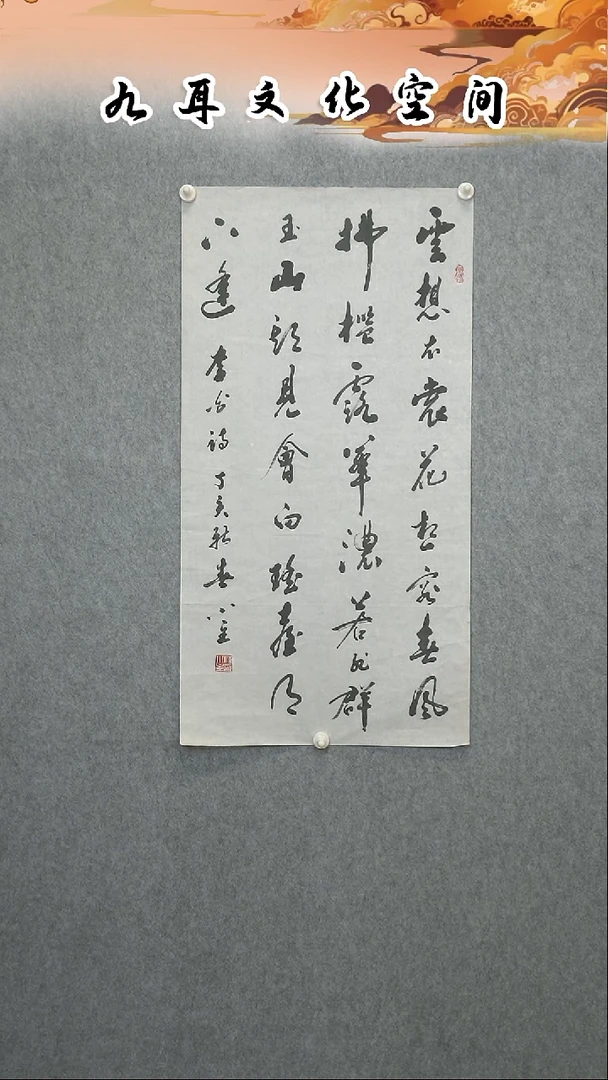 九耳文化空间
雲想衣裳花想容春風
拂檻露華濃若非群
玉山頭見會向瑤臺月
下逢 李白詩 丁亥